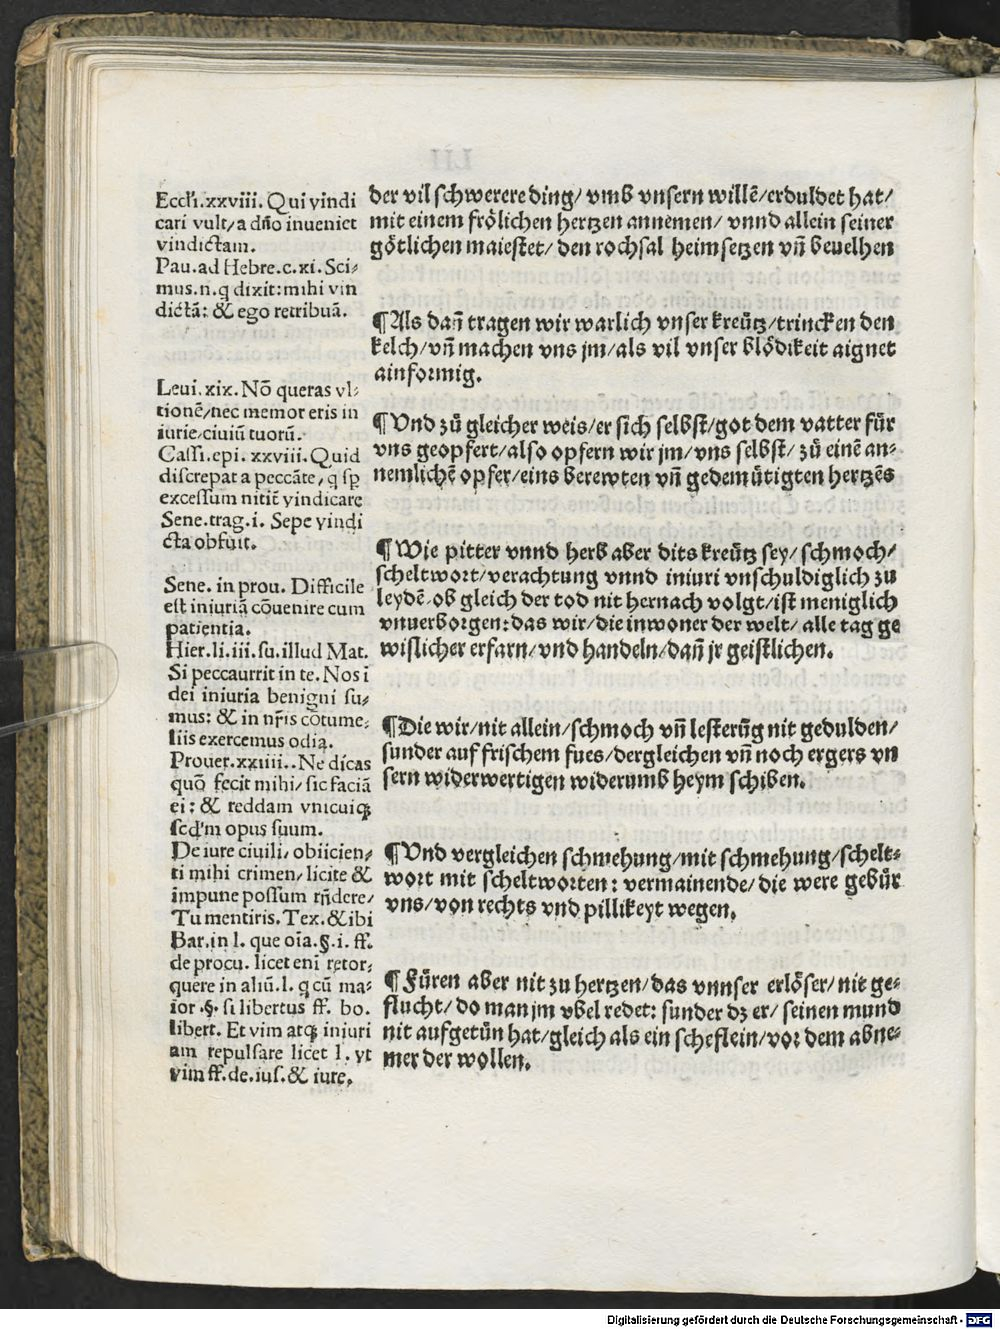 Eccl'i.xxviii. Qui vindi
cari vult/a dño inueniet
vindictam.
Pau.ad Hebre.c.xi. Sci⸗
mus.n.q dixit:mihi vin
dictã: & ego retribuã.
Leui.xix. Nõ queras vl⸗
tionẽ/nec memor eris in
iurie/ciuiũ tuorũ.
Cassi.epi.xxviii. Quid
discrepat a peccãte, q sp
excessum nitit̃ vindicare
Sene.trag.i. Sepe vindi
cta obfuit.
Sene. in prou. Difficile
est iniuriã cõuenire cum
patientia.
Hier.li.iii.su.illud Mat.
Si peccaurrit in te. Nos i
dei iniuria benigni su⸗
mus: & in nr̃is cõtume⸗
liis exercemus odia.
Prouer.xxiiii..Ne dicas
quõ fecit mihi/sic faciã
ei: & reddam vnicuiqꝫ
scd'm opus suum.
De iure ciuili, obiicien⸗
ti mihi crimen/licite &
impune possum rñdere/
Tu mentiris. Tex.&ibi
Bar.in l. que oĩa.§.i. ff.
de procu. licet enĩ retor⸗
quere in aliũ.l. q cũ ma⸗
ior.§. si libertus ff. bo.
libert. Et vim atqꝫ iniuri
am repulsare licet l. vt
vim ff.de.ius.& iure.
der vil schwerere ding/ vmb vnsern willẽ/erduldet hat/
mit einem frölichen hertzen annemen/ vnnd allein seiner
götlichen maiestet/ den rochsal heimsetzen vñ beuelhen
¶Als dañ tragen wir warlich vnser kreütz/trincken den
kelch/vñ machen vns jm/als vil vnser blödikeit aignet
ainformig.
¶Vnd zů gleicher weis/er sich selbst/got dem vatter für
vns geopfert/also opfern wir jm/vns selbst/ zů einẽ an⸗
nemlichẽ opfer/eins berewten vñ gedemütigten hertzẽs
¶Wie pitter vnnd herb aber dits kreütz sey/ schmoch/
scheltwort/verachtung vnnd iniuri vnschuldiglich zu
leydẽ, ob gleich der tod nit hernach volgt/ist meniglich
vnuerborgen: das wir/die inwoner der welt/ alle tag ge
wislicher erfarn/vnd handeln/dañ jr geistlichen.
¶Die wir/nit allein/schmoch vñ lesterũg nit gedulden/
sunder auf frischem fues/dergleichen vñ noch ergers vn
sern widerwertigen widerumb heym schiben.
¶Vnd vergleichen schmehung/mit schmehung/schelt⸗
wort mit scheltworten: vermainende/die were gebür
vns/von rechts vnd pillikeyt wegen.
¶Füren aber nit zu hertzen/das vnnser erlöser/nit ge⸗
flucht/do man jm vbel redet: sunder dz er/ seinen mund
nit aufgetün hat/gleich als ein scheflein/vor dem abne⸗
mer der wollen.
Digitalisierung gefördert durch die Deutsche Forschungsgemeinschaft - DFG